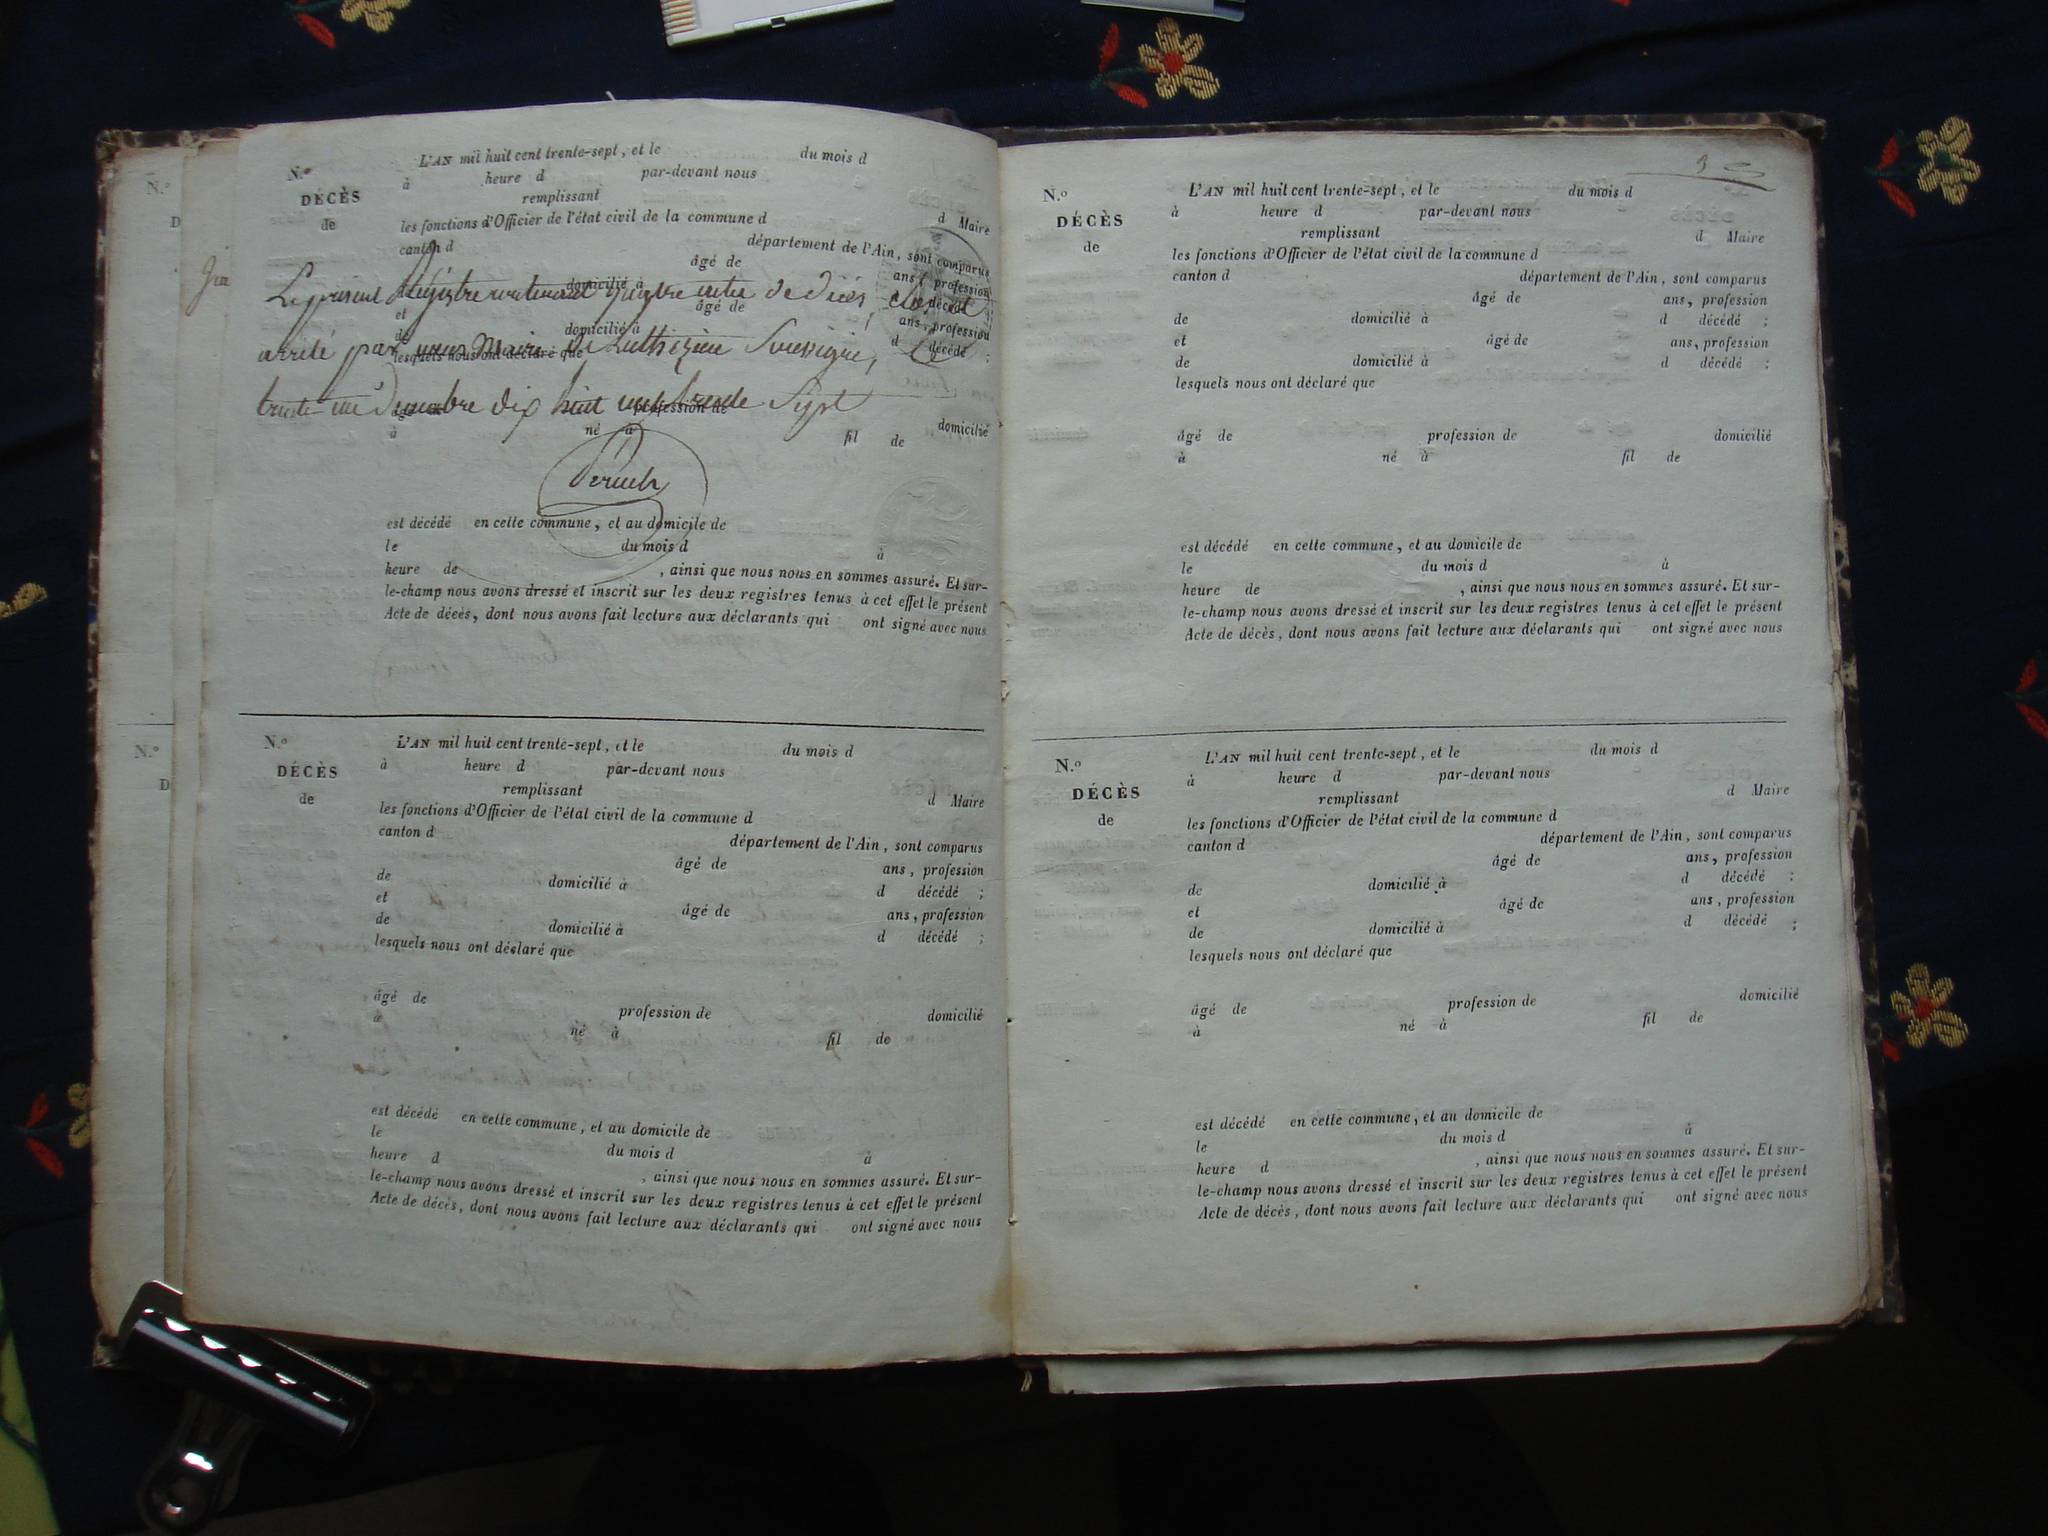 N.º
DÉCÈS
de
L'AN mil huit cent trente-sept, et le du mois d
à heure d par-devant nous
remplissant
les fonctions d'Officier de l'état civil de la commune d d Maire
canton d département de l'Ain, sont comparus
âgé de ans, profession
de domicilié à d décédé ;
et âgé de ans, profession
de domicilié à d décédé ;
lesquels nous ont déclaré que
Le présent Régistre contenant quatre actes de décès, clos et
arrêté par nous Maire de Luthézieu Soussigné, Le
trente un Decembre dix huit cent trente Sept
âgé de profession de domicilié
à né à fil de
est décédé en cette commune, et au domicile de
le du mois d à
heure de , ainsi que nous nous en sommes assuré. Et sur-
le-champ nous avons dressé et inscrit sur les deux registres tenus à cet effet le présent
Acte de décès, dont nous avons fait lecture aux déclarants qui ont signé avec nous
N.º
DÉCÈS
de
L'AN mil huit cent trente-sept, et le du mois d
à heure d par-devant nous
remplissant
les fonctions d'Officier de l'état civil de la commune d d Maire
canton d département de l'Ain, sont comparus
âgé de ans, profession
de domicilié à d décédé ;
et âgé de ans, profession
de domicilié à d décédé ;
lesquels nous ont déclaré que
âgé de profession de domicilié
à né à fil de
est décédé en cette commune, et au domicile de
le du mois d à
heure d , ainsi que nous nous en sommes assuré. Et sur-
le-champ nous avons dressé et inscrit sur les deux registres tenus à cet effet le présent
Acte de décès, dont nous avons fait lecture aux déclarants qui ont signé avec nous
N.º
DÉCÈS
de
L'AN mil huit cent trente-sept, et le du mois d
à heure d par-devant nous
remplissant d Maire
les fonctions d'Officier de l'état civil de la commune d
canton d département de l'Ain, sont comparus
âgé de ans, profession
de domicilié à d décédé ;
et âgé de ans, profession
de domicilié à d décédé ;
lesquels nous ont déclaré que
âgé de profession de domicilié
à né à fil de
est décédé en cette commune, et au domicile de
le du mois d à
heure de , ainsi que nous nous en sommes assuré. Et sur-
le-champ nous avons dressé et inscrit sur les deux registres tenus à cet effet le présent
Acte de décès, dont nous avons fait lecture aux déclarants qui ont signé avec nous
N.º
DÉCÈS
de
L'AN mil huit cent trente-sept, et le du mois d
à heure d par-devant nous
remplissant d Maire
les fonctions d'Officier de l'état civil de la commune d
canton d département de l'Ain, sont comparus
âgé de ans, profession
de domicilié à d décédé ;
et âgé de ans, profession
de domicilié à d décédé ;
lesquels nous ont déclaré que
âgé de profession de domicilié
à né à fil de
est décédé en cette commune, et au domicile de
le du mois d à
heure d , ainsi que nous nous en sommes assuré. Et sur-
le-champ nous avons dressé et inscrit sur les deux registres tenus à cet effet le présent
Acte de décès, dont nous avons fait lecture aux déclarants qui ont signé avec nous